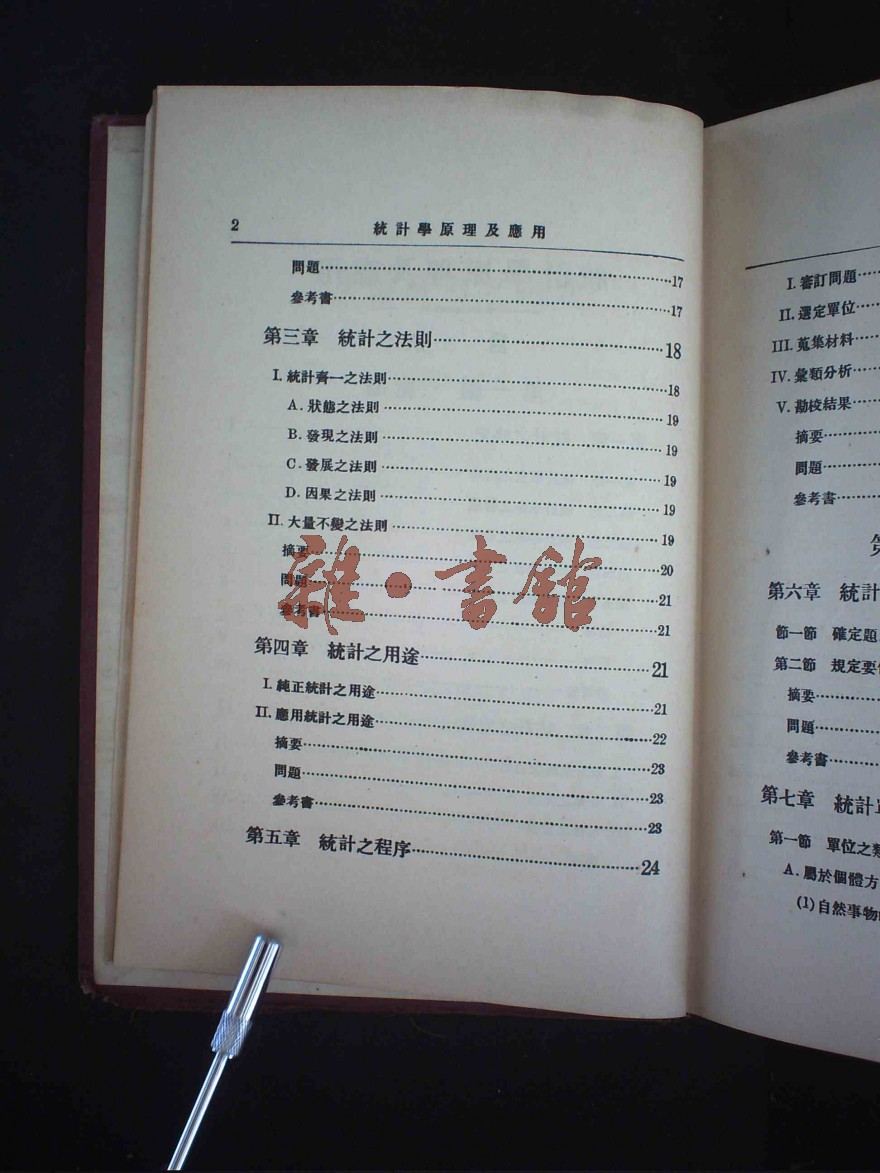 2 統計學原理及應用
問題……17
參考書……17
第三章 統計之法則……18
I. 統計齊一之法則……18
A. 狀態之法則……19
B. 發現之法則……19
C. 發展之法則……19
D. 因果之法則……19
II. 大量不變之法則……19
摘要……20
問題……21
參考書……21
雜·書館
第四章 統計之用途……21
I. 純正統計之用途……21
II. 應用統計之用途……22
摘要……23
問題……23
參考書……23
第五章 統計之程序……24
I. 審訂問題……
II. 選定單位……
III. 蒐集材料……
IV. 彙類分析……
V. 勘校結果……
摘要……
問題……
參考書……
第六章 統計
節一節 確定題
第二節 規定要
摘要……
問題……
參考書……
第七章 統計
第一節 單位之類
A. 屬於個體方
(1) 自然事物